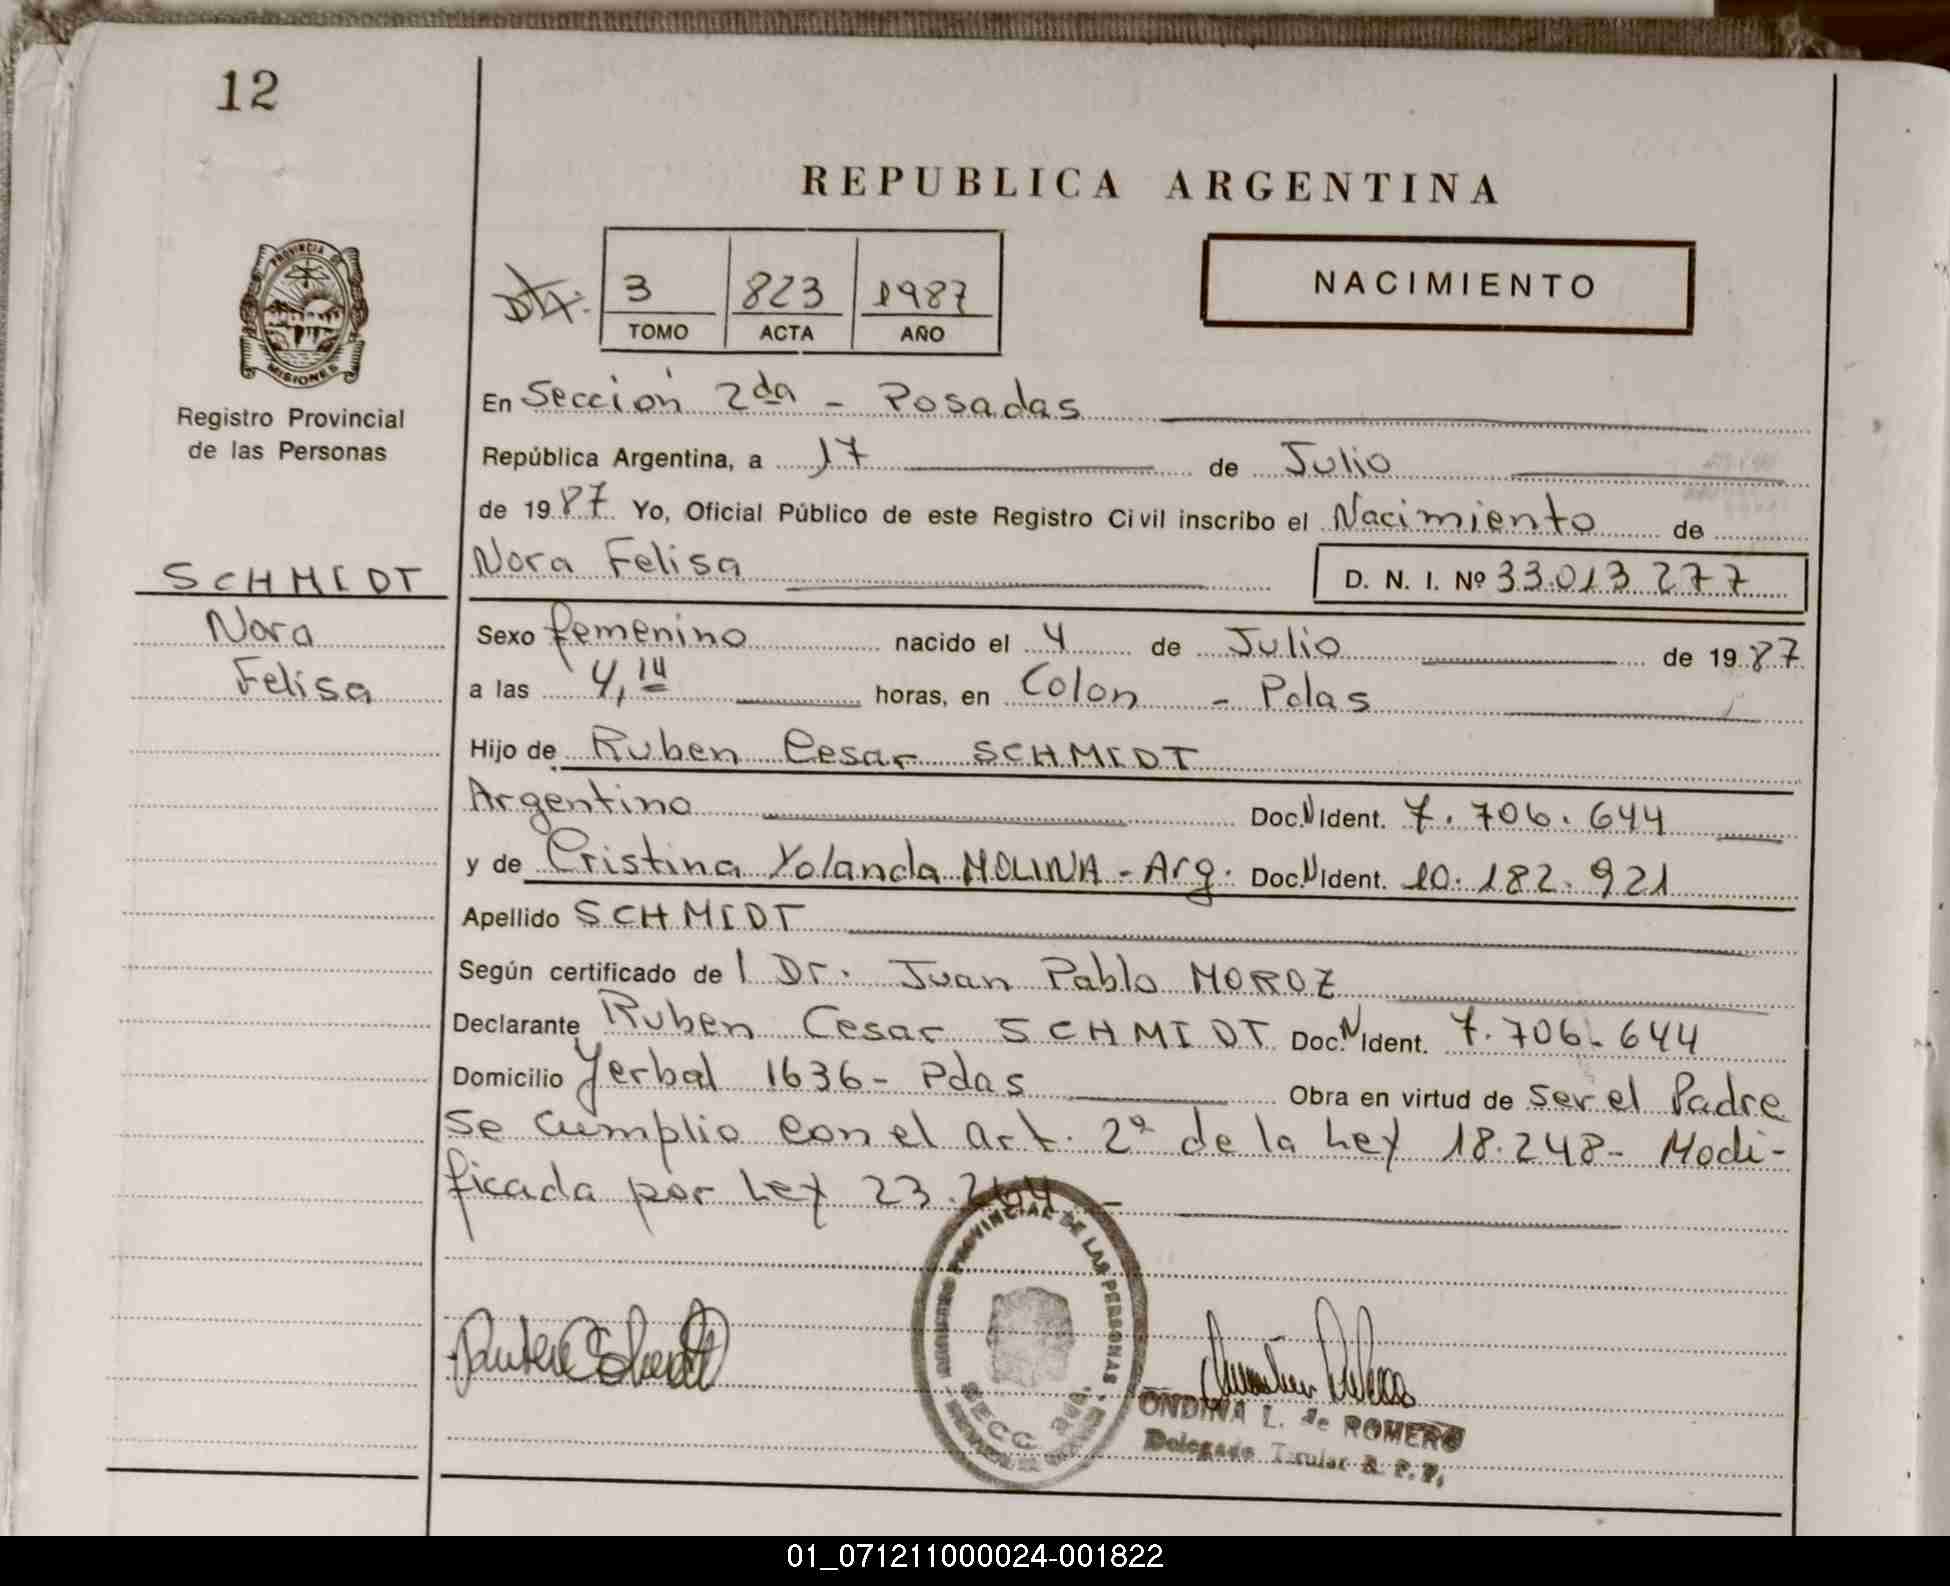 12
REPUBLICA ARGENTINA
PROVINCIA DE
MISIONES
Registro Provincial
de las Personas
3 823 1987
TOMO ACTA AÑO
NACIMIENTO
En Sección 2da - Posadas
República Argentina, a 17 de Julio
de 1987 Yo, Oficial Público de este Registro Civil inscribo el Nacimiento de
SCHMIDT
Nora Felisa D. N. I. Nº 33.013.277
Nora
Felisa
Sexo femenino nacido el 4 de Julio de 1987
a las 4,14 horas, en Colon - Pdas
Hijo de Ruben Cesar SCHMIDT
Argentino Doc. N Ident. 7.706.644
y de Cristina Yolanda MOLINA - Arg. Doc. N Ident. 10.182.921
Apellido SCHMIDT
Según certificado de l Dr. Juan Pablo MOROZ
Declarante Ruben Cesar SCHMIDT Doc. N Ident. 7.706.644
Domicilio Yerbal 1636 - Pdas Obra en virtud de ser el Padre
Se cumplio con el art. 2º de la Ley 18.248 - Modi-
ficada por Ley 23.264 -
PROVINCIAL DE LAS PERSONAS
SECC.
ONDINA L. de ROMERO
Delegado Titular R. P. P.
01_071211000024-001822